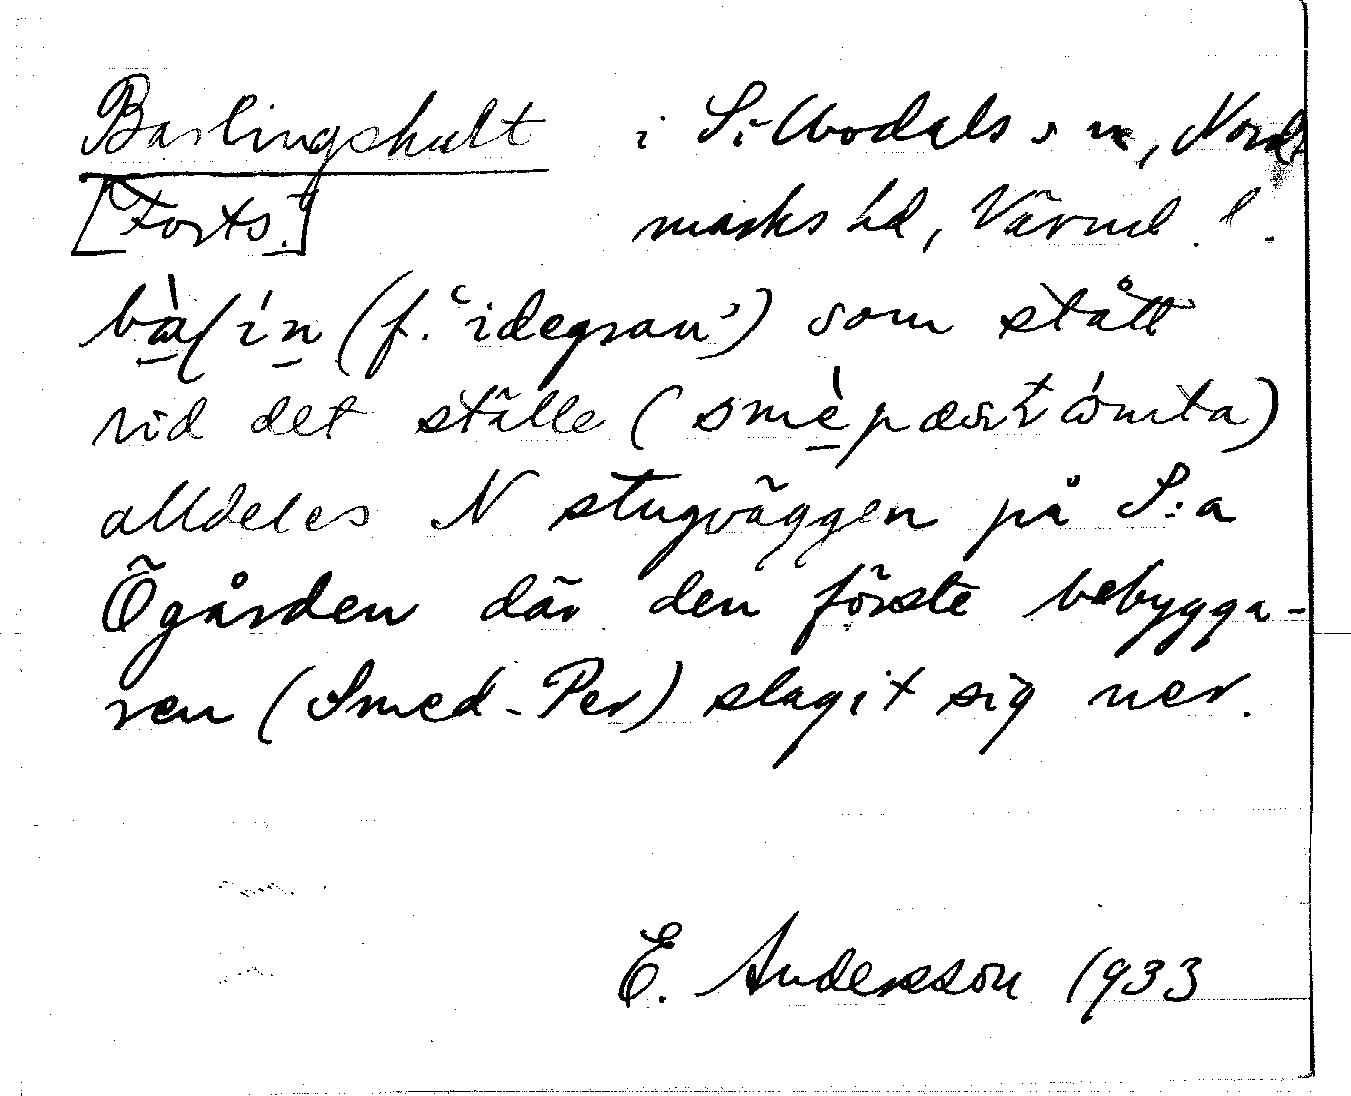 Barlingshult i Sillbodals sn, Nord-
[Forts.] marks hd, Värml. l.
(f. 'idegran') som stått
vid det ställe (
alldeles N stugväggen på S:a
Ögården där den förste bebygga-
ren (Smed-Per) slagit sig ner.
E. Andersson 1933